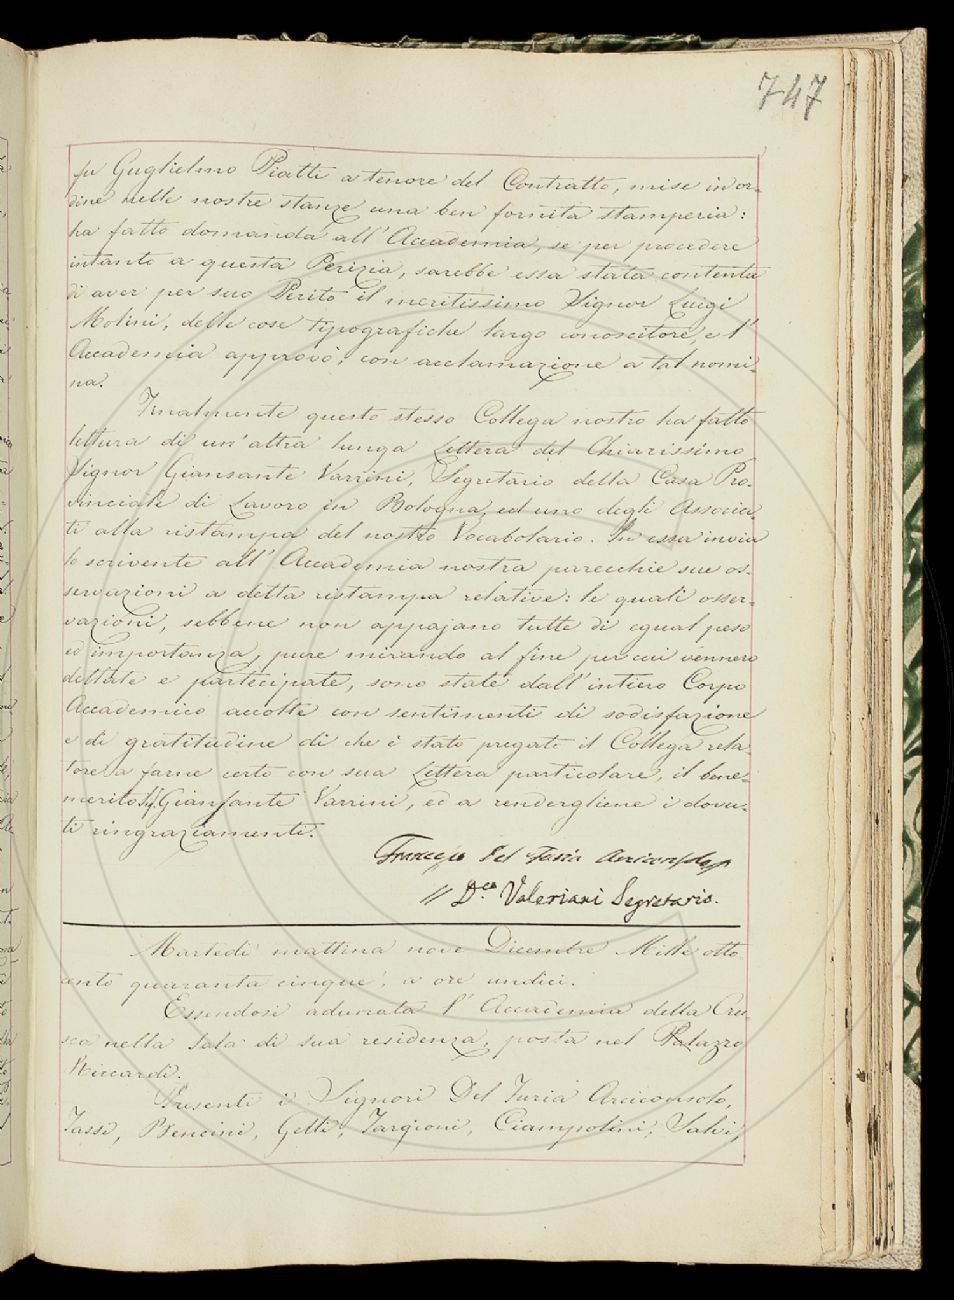 747
fu Guglielmo Piatti a tenore del Contratto, mise in or-
dine nelle nostre stanze una ben fornita stamperia:
ha fatto domanda all'Accademia, se per procedere
intanto a questa Perizia, sarebbe essa stata contenta
di aver per suo Perito il meritissimo Signor Luigi
Molini, delle cose tipografiche largo conoscitore, e l'
Accademia approvò, con acclamazione a tal nomi-
na.
Finalmente questo stesso Collega nostro ha fatto
lettura di un'altra lunga Lettera del Chiarissimo
Signor Giansante Varrini, Segretario della Casa Pro-
vinciale di Lavoro in Bologna, ed uno degli Associa-
ti alla ristampa del nostro Vocabolario. In essa invia
lo scrivente all'Accademia nostra parecchie sue os-
servazioni a detta ristampa relative: le quali osser-
vazioni, sebbene non appajano tutte di egual peso
ed importanza, pure mirando al fine per cui vennero
dettate e partecipate, sono state dall'intiero Corpo
Accademico accolte con sentimenti di sodisfazione
e di gratitudine di che è stato pregato il Collega rela-
tore a farne certo con sua Lettera particolare, il bene-
merito Sig. Gianfante Varrini, ed a rendergliene i dovu-
ti ringraziamenti.
Francesco Del Furia Arciconsolo
D.co Valeriani Segretario.
Martedì mattina nove Dicembre Mille otto-
cento quaranta cinque, a ore undici.
Essendosi adunata l'Accademia della Cru-
sca nella Sala di sua residenza, posta nel Palazzo
Riccardi.
Presenti i Signori Del Furia Arciconsolo,
Tassi, Bencini, Gelli, Targioni, Ciampolini, Salvi,